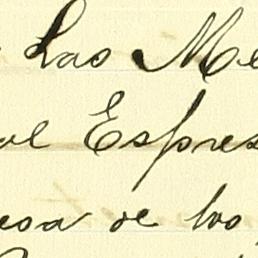 Las Me
al Espres
esa de los